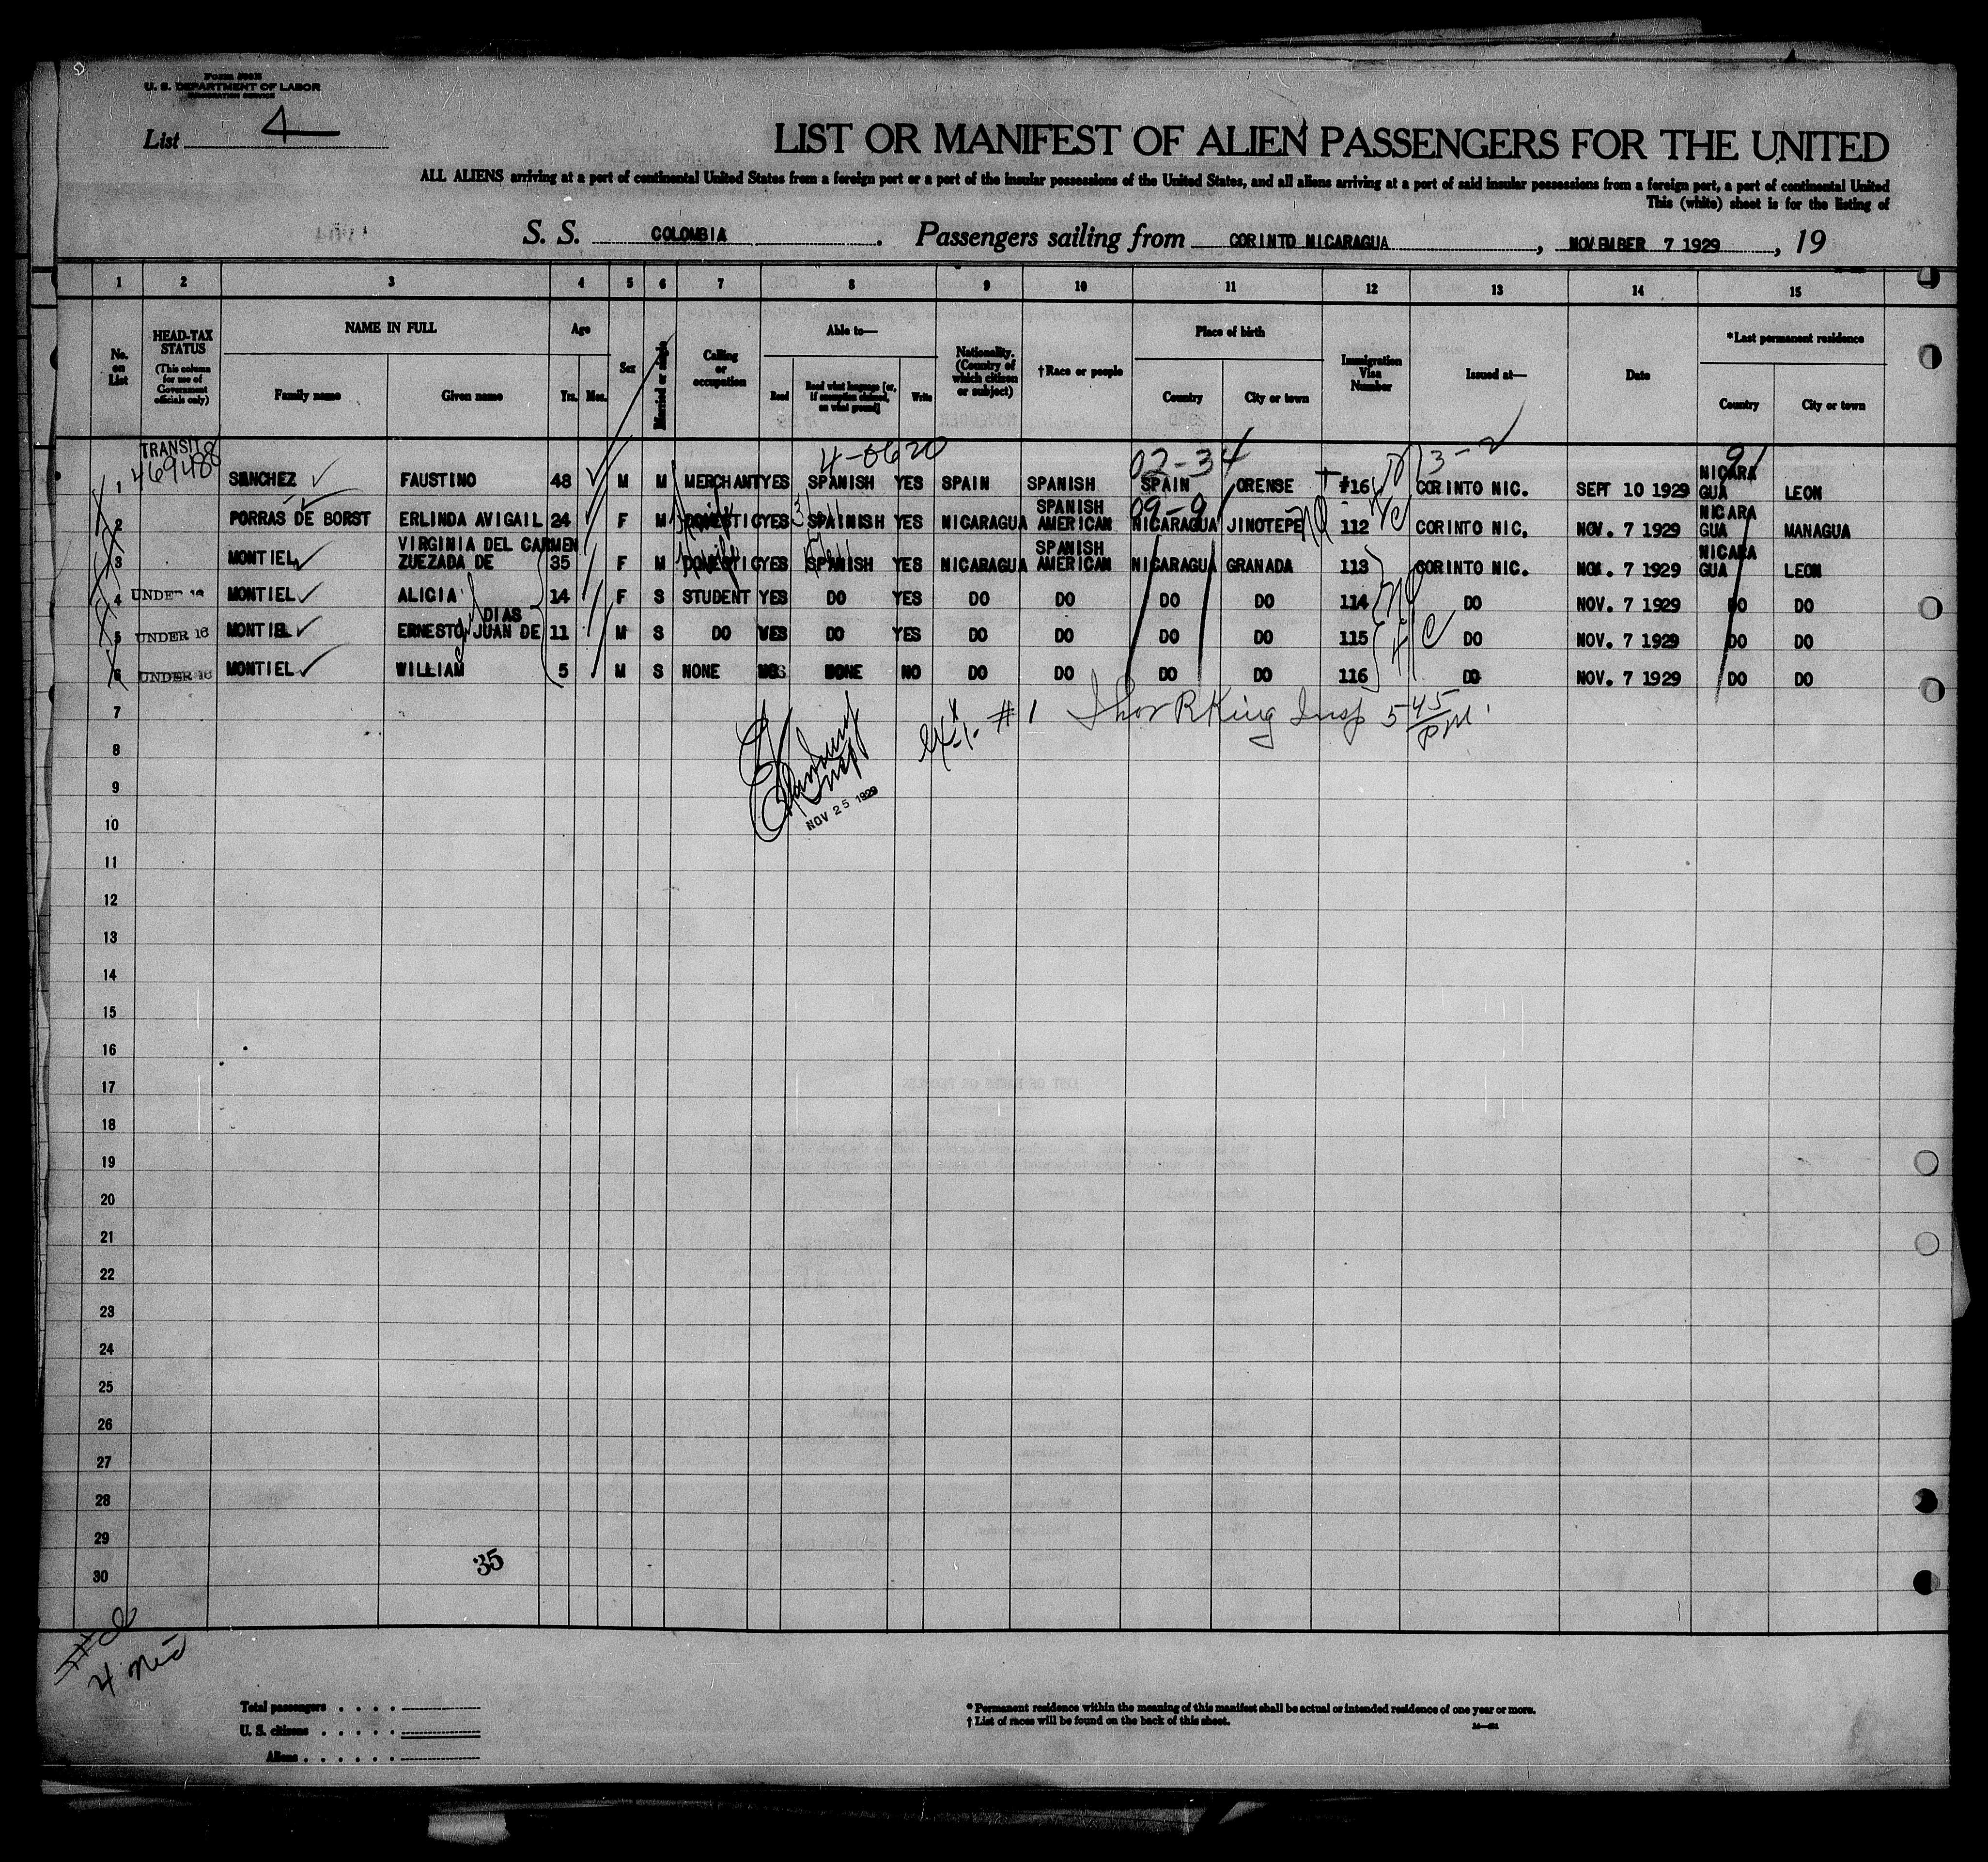 U. S. DEPARTMENT OF LABOR
List 4
LIST OR MANIFEST OF ALIEN PASSENGERS FOR THE UNITED
ALL ALIENS arriving at a port of continental United States from a foreign port or a port of the insular possessions of the United States, and all aliens arriving at a port of said insular possessions from a foreign port, a port of continental United
This (white) sheet is for the listing of
S. S. COLOMBIA. Passengers sailing from CORINTO NICARAGUA, NOVEMBER 7 1929, 19
1 2 3 4 5 6 7 8 9 10 11 12 13 14 15
No. on List
HEAD-TAX STATUS (This column for use of Government officials only)
NAME IN FULL
Family name Given name
Age
Yrs. Mos.
Sex
Married or single
Calling or occupation
Able to—
Read Read what language [or, if exemption claimed, on what ground] Write
Nationality. (Country of which citizen or subject)
†Race or people
Place of birth
Country City or town
Immigration Visa Number
Issued at—
Date
*Last permanent residence
Country City or town
TRANSIT
469488
4-0620
02-34
13-2
91
1 SANCHEZ FAUSTINO 48 M M MERCHANT YES SPANISH YES SPAIN SPANISH SPAIN ORENSE #16 CORINTO NIC. SEPT 10 1929 NICARAGUA LEON
09-9
2 PORRAS DE BORST ERLINDA AVIGAIL 24 F M DOMESTIC YES SPAINISH YES NICARAGUA SPANISH AMERICAN NICARAGUA JINOTEPE 112 CORINTO NIC. NOV. 7 1929 NICARAGUA MANAGUA
3 MONTIEL VIRGINIA DEL CARMEN ZUEZADA DE 35 F M DOMESTIC YES SPANISH YES NICARAGUA SPANISH AMERICAN NICARAGUA GRANADA 113 CORINTO NIC. NOV. 7 1929 NICARAGUA LEON
4 UNDER 16 MONTIEL ALICIA 14 F S STUDENT YES DO YES DO DO DO DO 114 DO NOV. 7 1929 DO DO
5 UNDER 16 MONTIEL ERNESTO JUAN DE DIAS 11 M S DO YES DO YES DO DO DO DO 115 DO NOV. 7 1929 DO DO
6 UNDER 16 MONTIEL WILLIAM 5 M S NONE NO NONE NO DO DO DO DO 116 DO NOV. 7 1929 DO DO
7
#1 Thos R King Insp 5 45 PM
8
Insp
9
NOV 25 1929
10
11
12
13
14
15
16
17
18
19
20
21
22
23
24
25
26
27
28
29
35
30
Total passengers
U. S. citizens
Aliens
* Permanent residence within the meaning of this manifest shall be actual or intended residence of one year or more.
† List of races will be found on the back of this sheet.